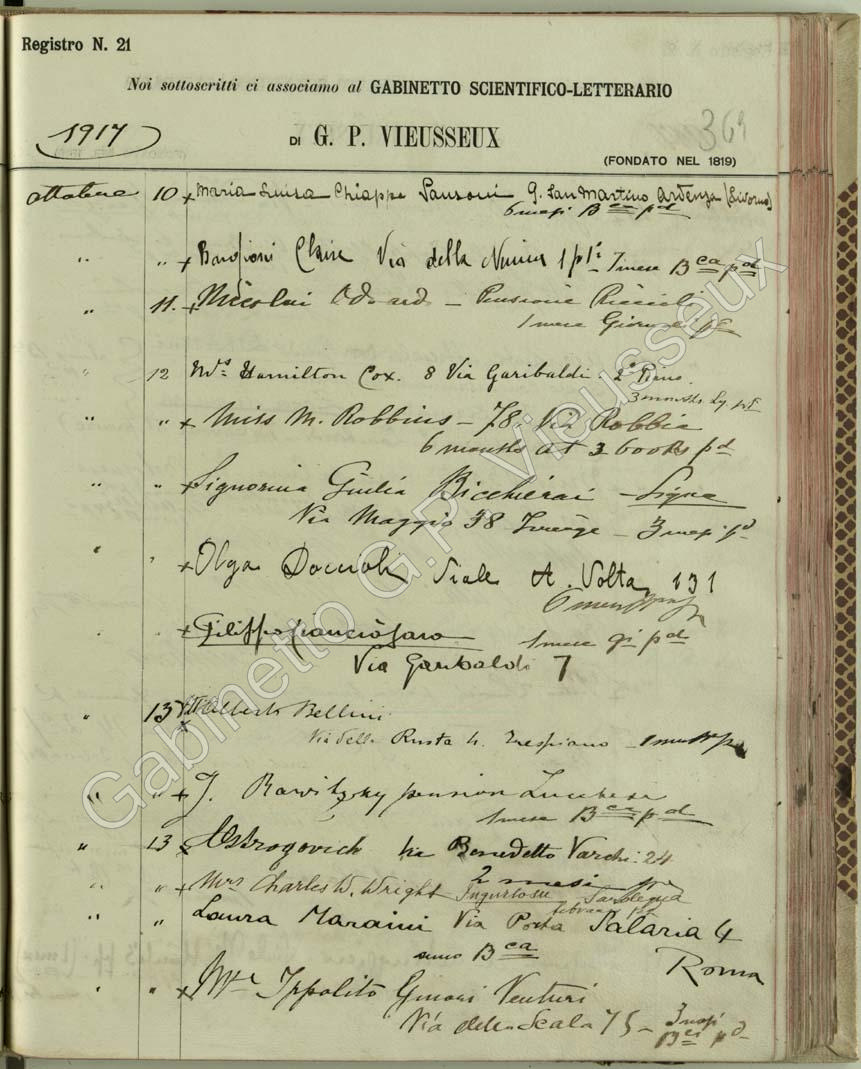 Registro N. 21
Noi sottoscritti ci associamo al GABINETTO SCIENTIFICO-LETTERARIO
1917
369
DI G. P. VIEUSSEUX
(FONDATO NEL 1819)
ottobre 10 x Maria Luisa Chiappe G. San Martino Ardenza (Livorno)
6 mesi Bca pd
" " x Claire Via della 1 p 1 mese Bca pd
" 11. x Nicolai Odoardo – Pensione Riccioli
1 mese Giornali pd
" 12 Mrs Hamilton Cox. 8 Via Garibaldi. 2º Piano.
3 months pd
" " x Miss M. Robbins – 78 Via Robbia
6 months at 3 books pd
" " x Signorina Giulia Bicchierai – Signa
Via Maggio 38 Firenze – 3 mesi pd
" " x Olga Viale A. Volta, 131
6 mesi
" " x Filippo
1 mese gi pd
Via Garibaldi 7
" 13 x Alberto Bellini
Via della Ruota 4. Trespiano 1 mese
" " x J. Rawitzky pension Lucchesi
1 mese Bca pd
" 13 x Ostrogovich Via Benedetto Varchi 24
2 mesi pd
" " x Mrs Charles W. Wright Ingurtosu Sardegna
" " Laura Maraini Via Porta Salaria 4
Roma
anno Bca
" " x Ippolito Ginori Venturi
Via della Scala 75 – 3 mesi
Bca pd
Gabinetto G.P. Vieusseux